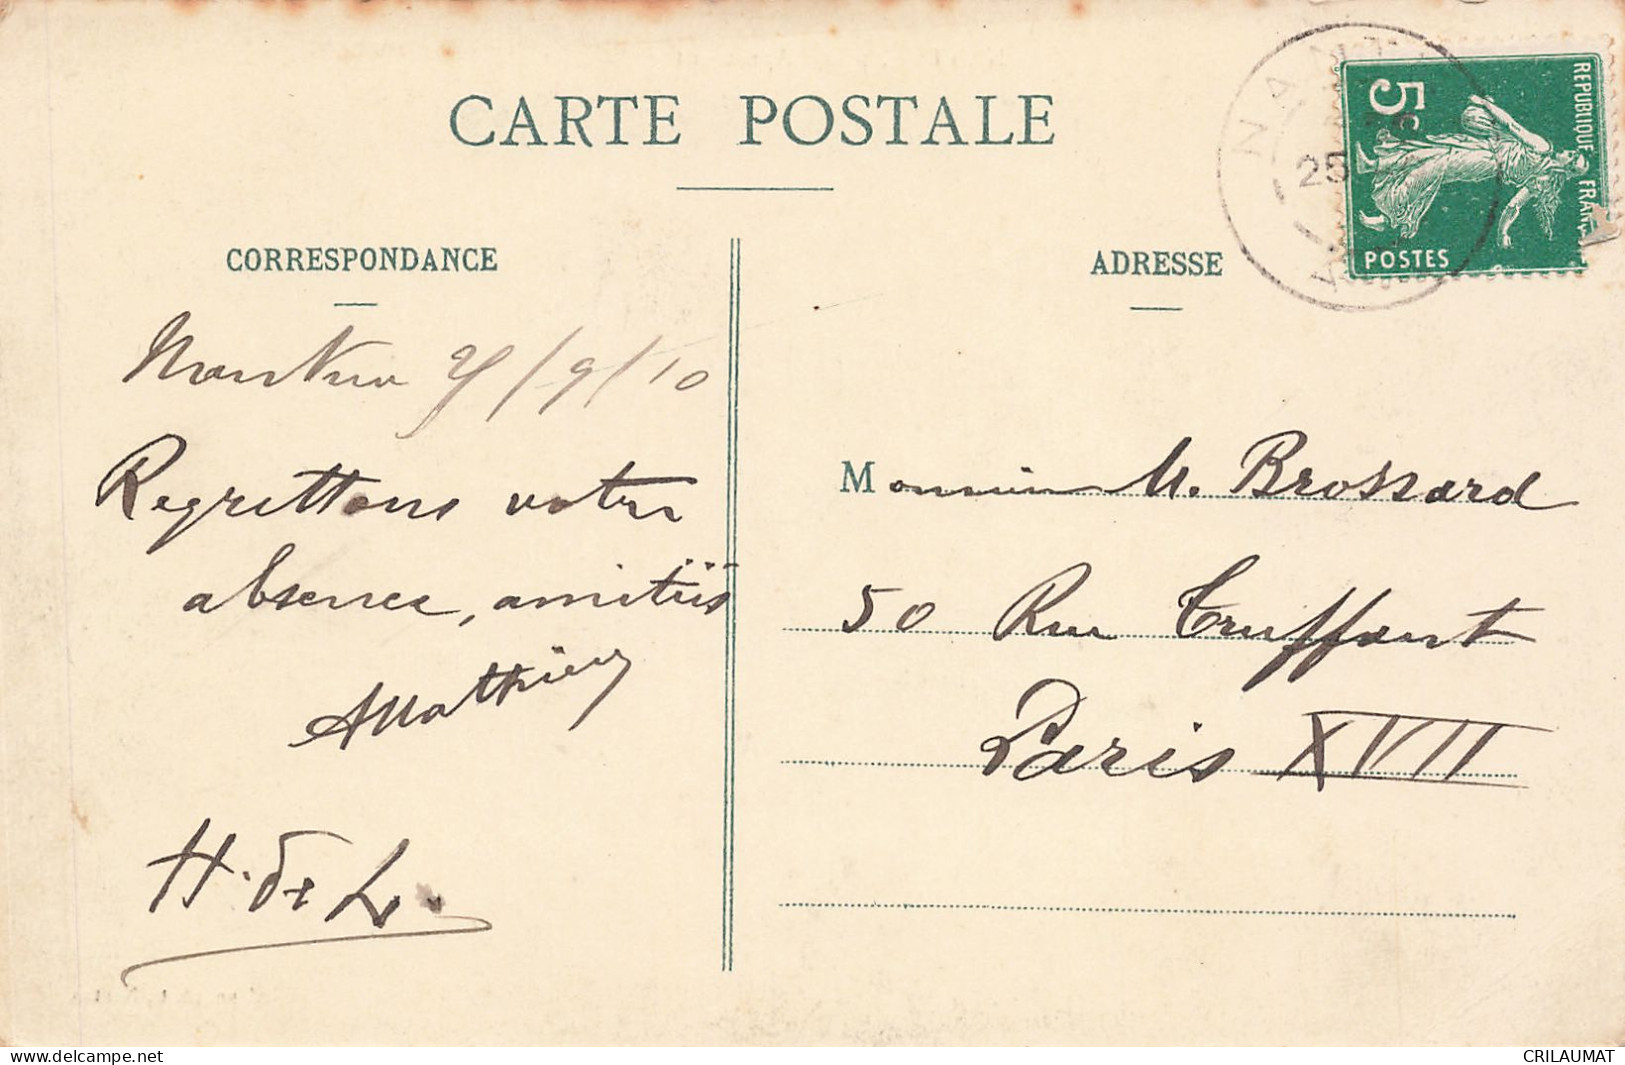 CARTE POSTALE
CORRESPONDANCE
Nantua 25/9/10
Regrettons votre
absence, amitiés
AMathieu
H. de L.
ADRESSE
Monsieur M. Brossard
50 Rue Truffaut
Paris XVII
NANT
25
A
5c
REPUBLIQUE FRAN
POSTES
www.delcampe.net
CRILAUMAT